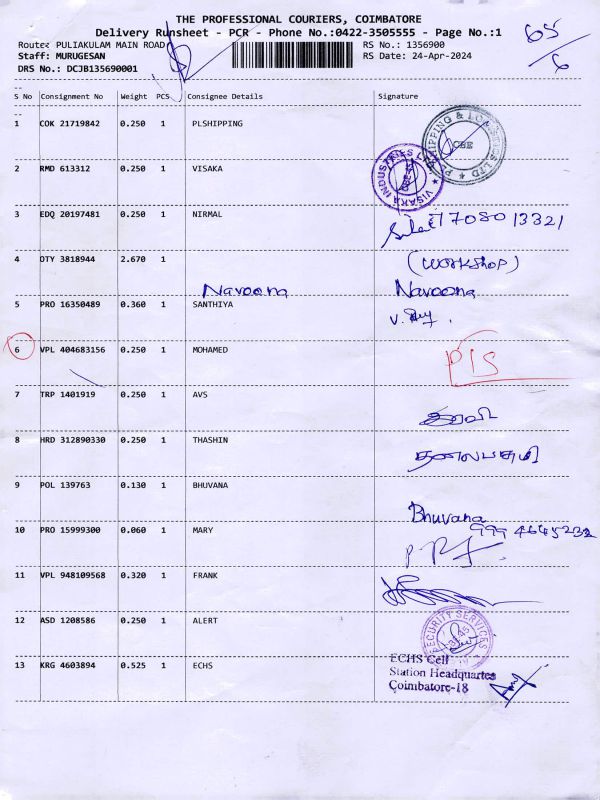 THE PROFESSIONAL COURIERS, COIMBATORE
Delivery Runsheet - PCR - Phone No.:0422-3505555 - Page No.:1
65/6
Route: PULIAKULAM MAIN ROAD
RS No.: 1356900
Staff: MURUGESAN
RS Date: 24-Apr-2024
DRS No.: DCJB135690001
S No Consignment No Weight PCS Consignee Details Signature
1 COK 21719842 0.250 1 PLSHIPPING
CBE
2 RMD 613312 0.250 1 VISAKA
VISAKA INDUSTRIES
3 EDQ 20197481 0.250 1 NIRMAL
7708013321
4 OTY 3818944 2.670 1
(workshop)
Navoona Navoona
5 PRO 16350489 0.360 1 SANTHIYA
6 VPL 404683156 0.250 1 MOHAMED
PIS
7 TRP 1401919 0.250 1 AVS
8 HRD 312890330 0.250 1 THASHIN
9 POL 139763 0.130 1 BHUVANA
Bhuvana
10 PRO 15999300 0.060 1 MARY
999 4645232
11 VPL 948109568 0.320 1 FRANK
12 ASD 1208586 0.250 1 ALERT
SECURITY SERVICES
13 KRG 4603894 0.525 1 ECHS
ECHS Cell
Station Headquartes
Coimbatore-18